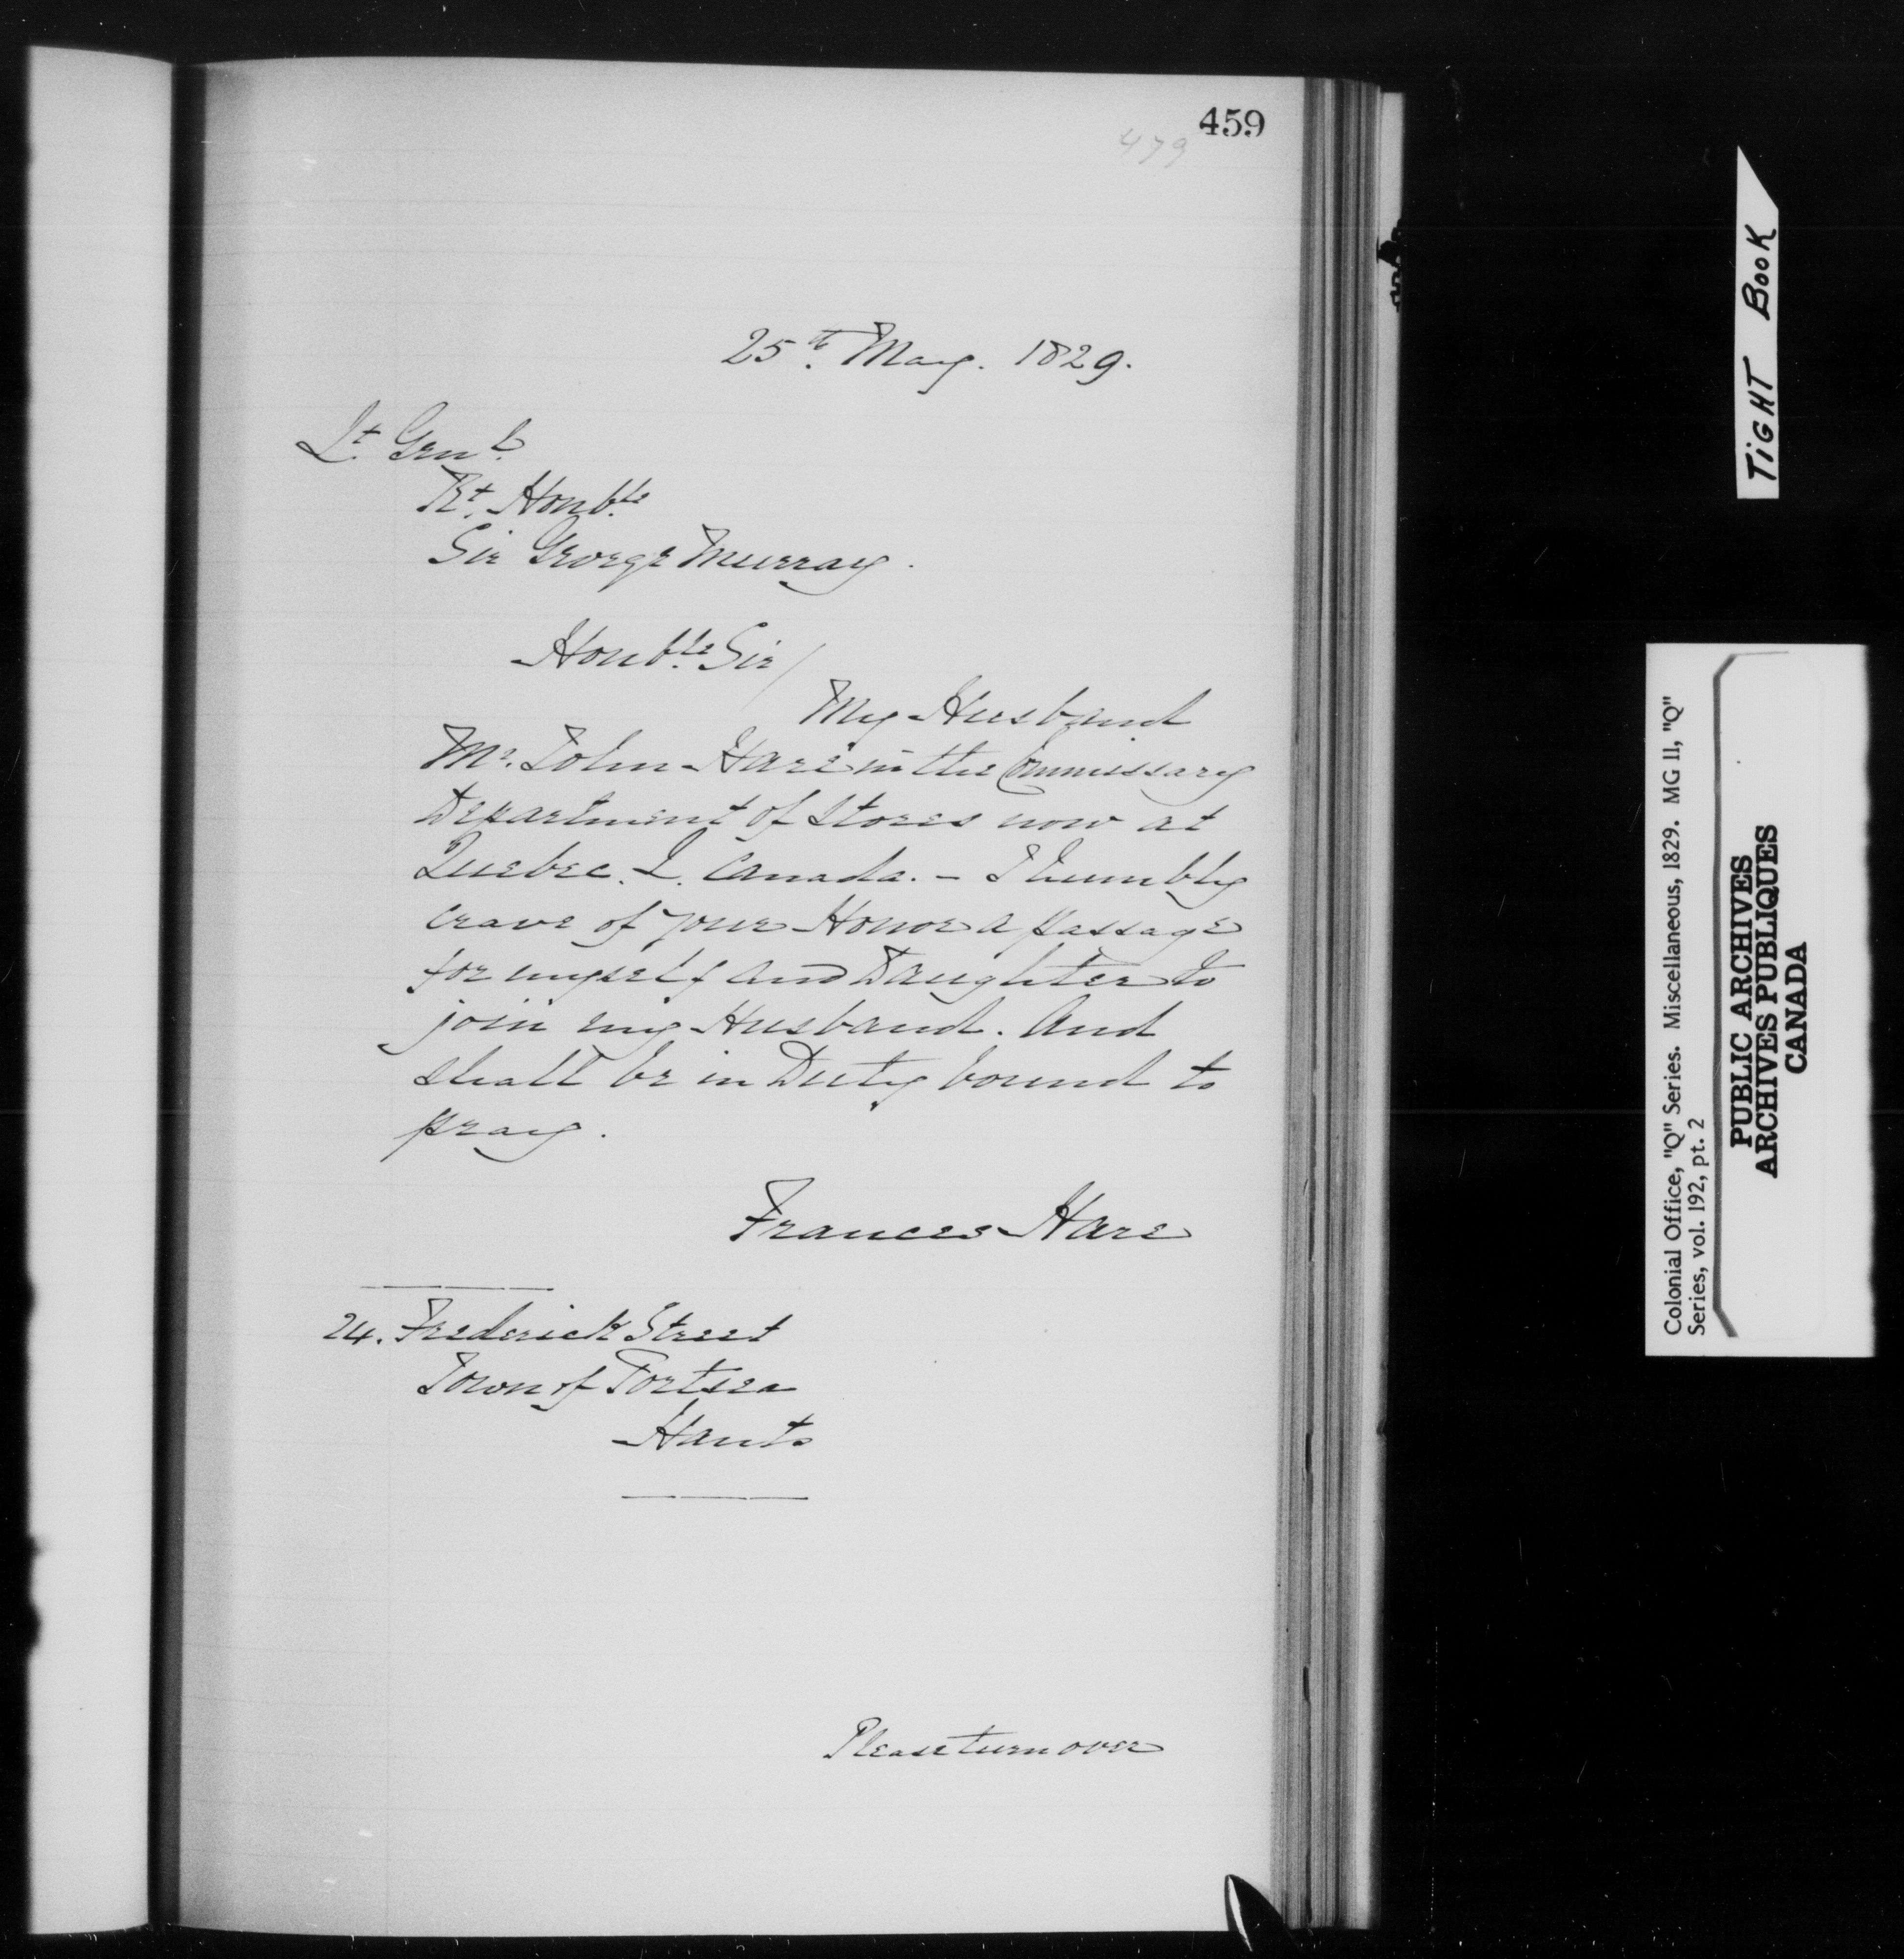 459
479
25th May. 1829.
Lt Genl.
Rt. Honble
Sir George Murray.
Honble Sir/
My Husband
Mr. John Hare in the Commissary
Department of Stores now at
Quebec. L. Canada. – I humbly
crave of your Honor a passage
for myself and Daughter to
join my Husband. And
shall be in Duty bound to
pray.
Frances Hare
24. Frederick Street
Town of Portsea
Hants
Please turn over
TIGHT BOOK
Colonial Office, "Q" Series. Miscellaneous, 1829. MG 11, "Q"
Series, vol. 192, pt. 2
PUBLIC ARCHIVES
ARCHIVES PUBLIQUES
CANADA